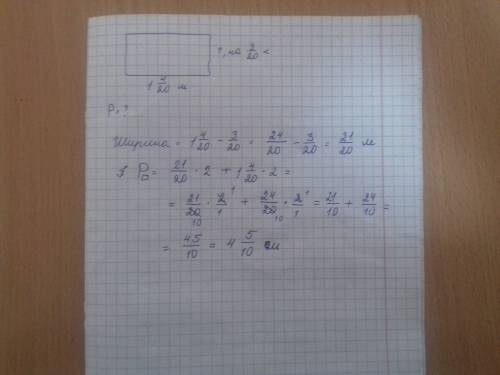 ?, на 3/20 <
1 4/20 м
P-?
Ширина = 1 4/20 - 3/20 = 24/20 - 3/20 = 21/20 м
P▭ = 21/20 · 2 + 1 4/20 · 2 =
= 21/20 · 2/1 + 24/20 · 2/1 = 21/10 + 24/10 =
= 45/10 = 4 5/10 м